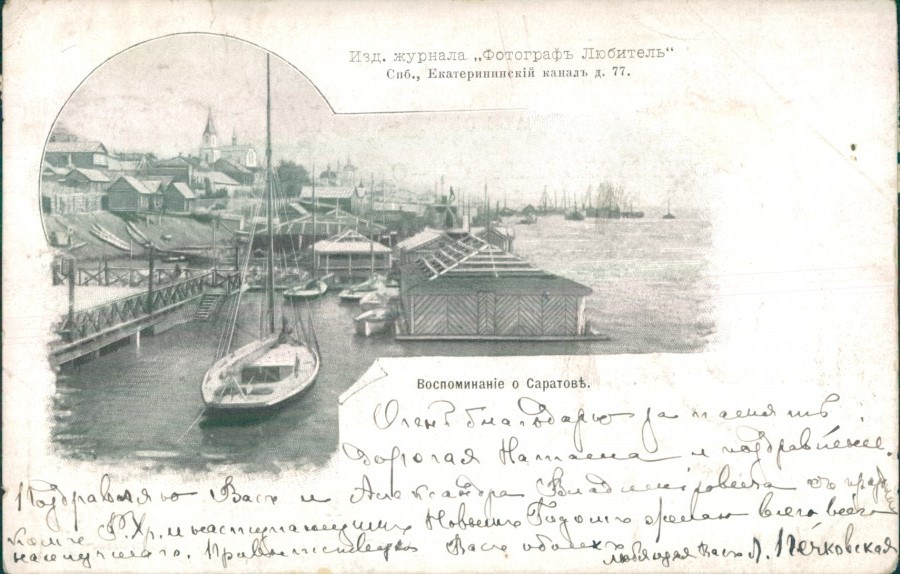 Изд. журнала „Фотографъ Любитель“
Спб., Екатерининскій каналъ д. 77.
Воспоминаніе о Саратовѣ.
Очень благодарю за память
Дорогая Наташа и поздравленіе.
Поздравляю Васъ и Александра Владиміровича съ празд
комъ Р. Хр. и наступающимъ Новымъ Годомъ желаю всего всего
наилучшаго. Привѣтствую Васъ обоихъ
любящая Васъ Л. Печковская